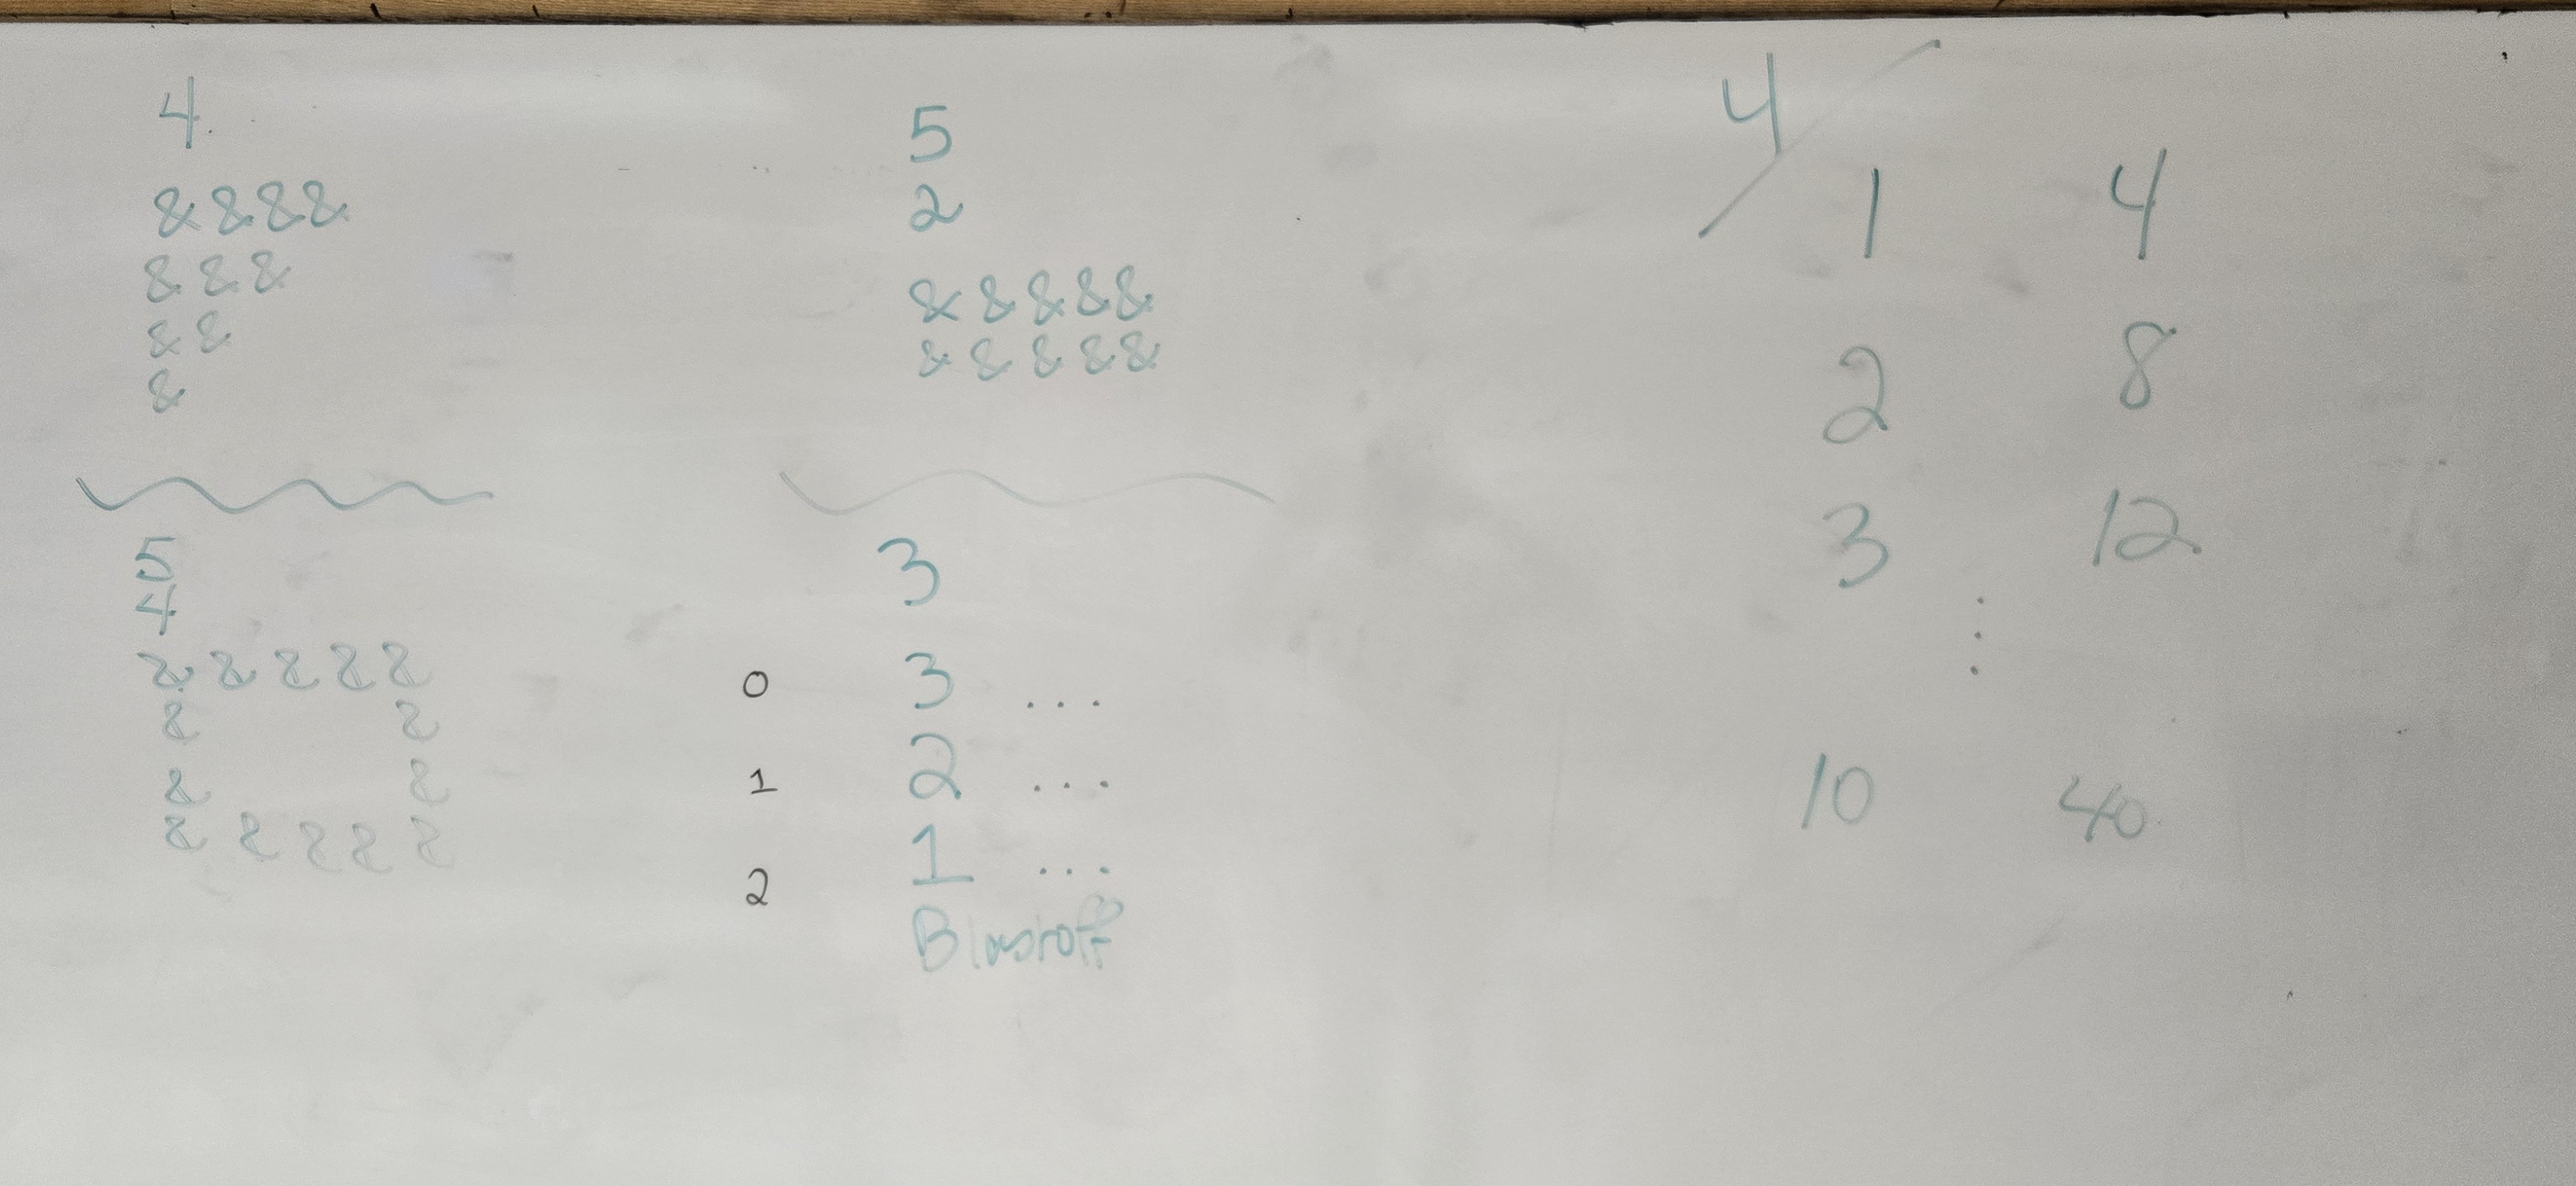 4
& & & &
& & &
& &
&
5
4
& & & & &
& &
& &
& & & & &
5
2
& & & & &
& & & & &
3
0 3 ...
1 2 ...
2 1 ...
Blastoff
4
1 4
2 8
3 12
⋮
10 40